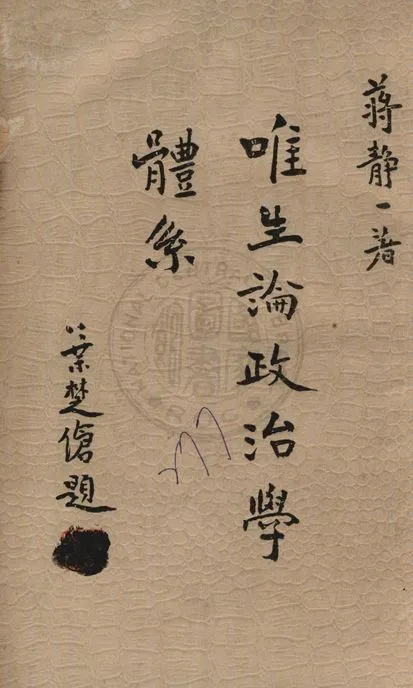 蔣靜一著
唯生論政治學
體系
葉楚傖題